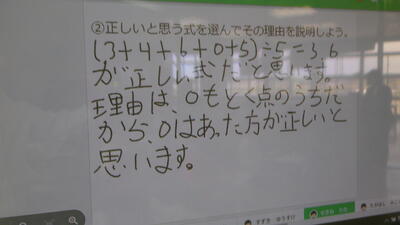 ②正しいと思う式を選んでその理由を説明しよう。
(3+4+6+0+5)÷5=3.6
が正しい式だと思います。
理由は、0もとく点のうちだ
から、0はあった方が正しいと
思います。
すずき ゆうすけ